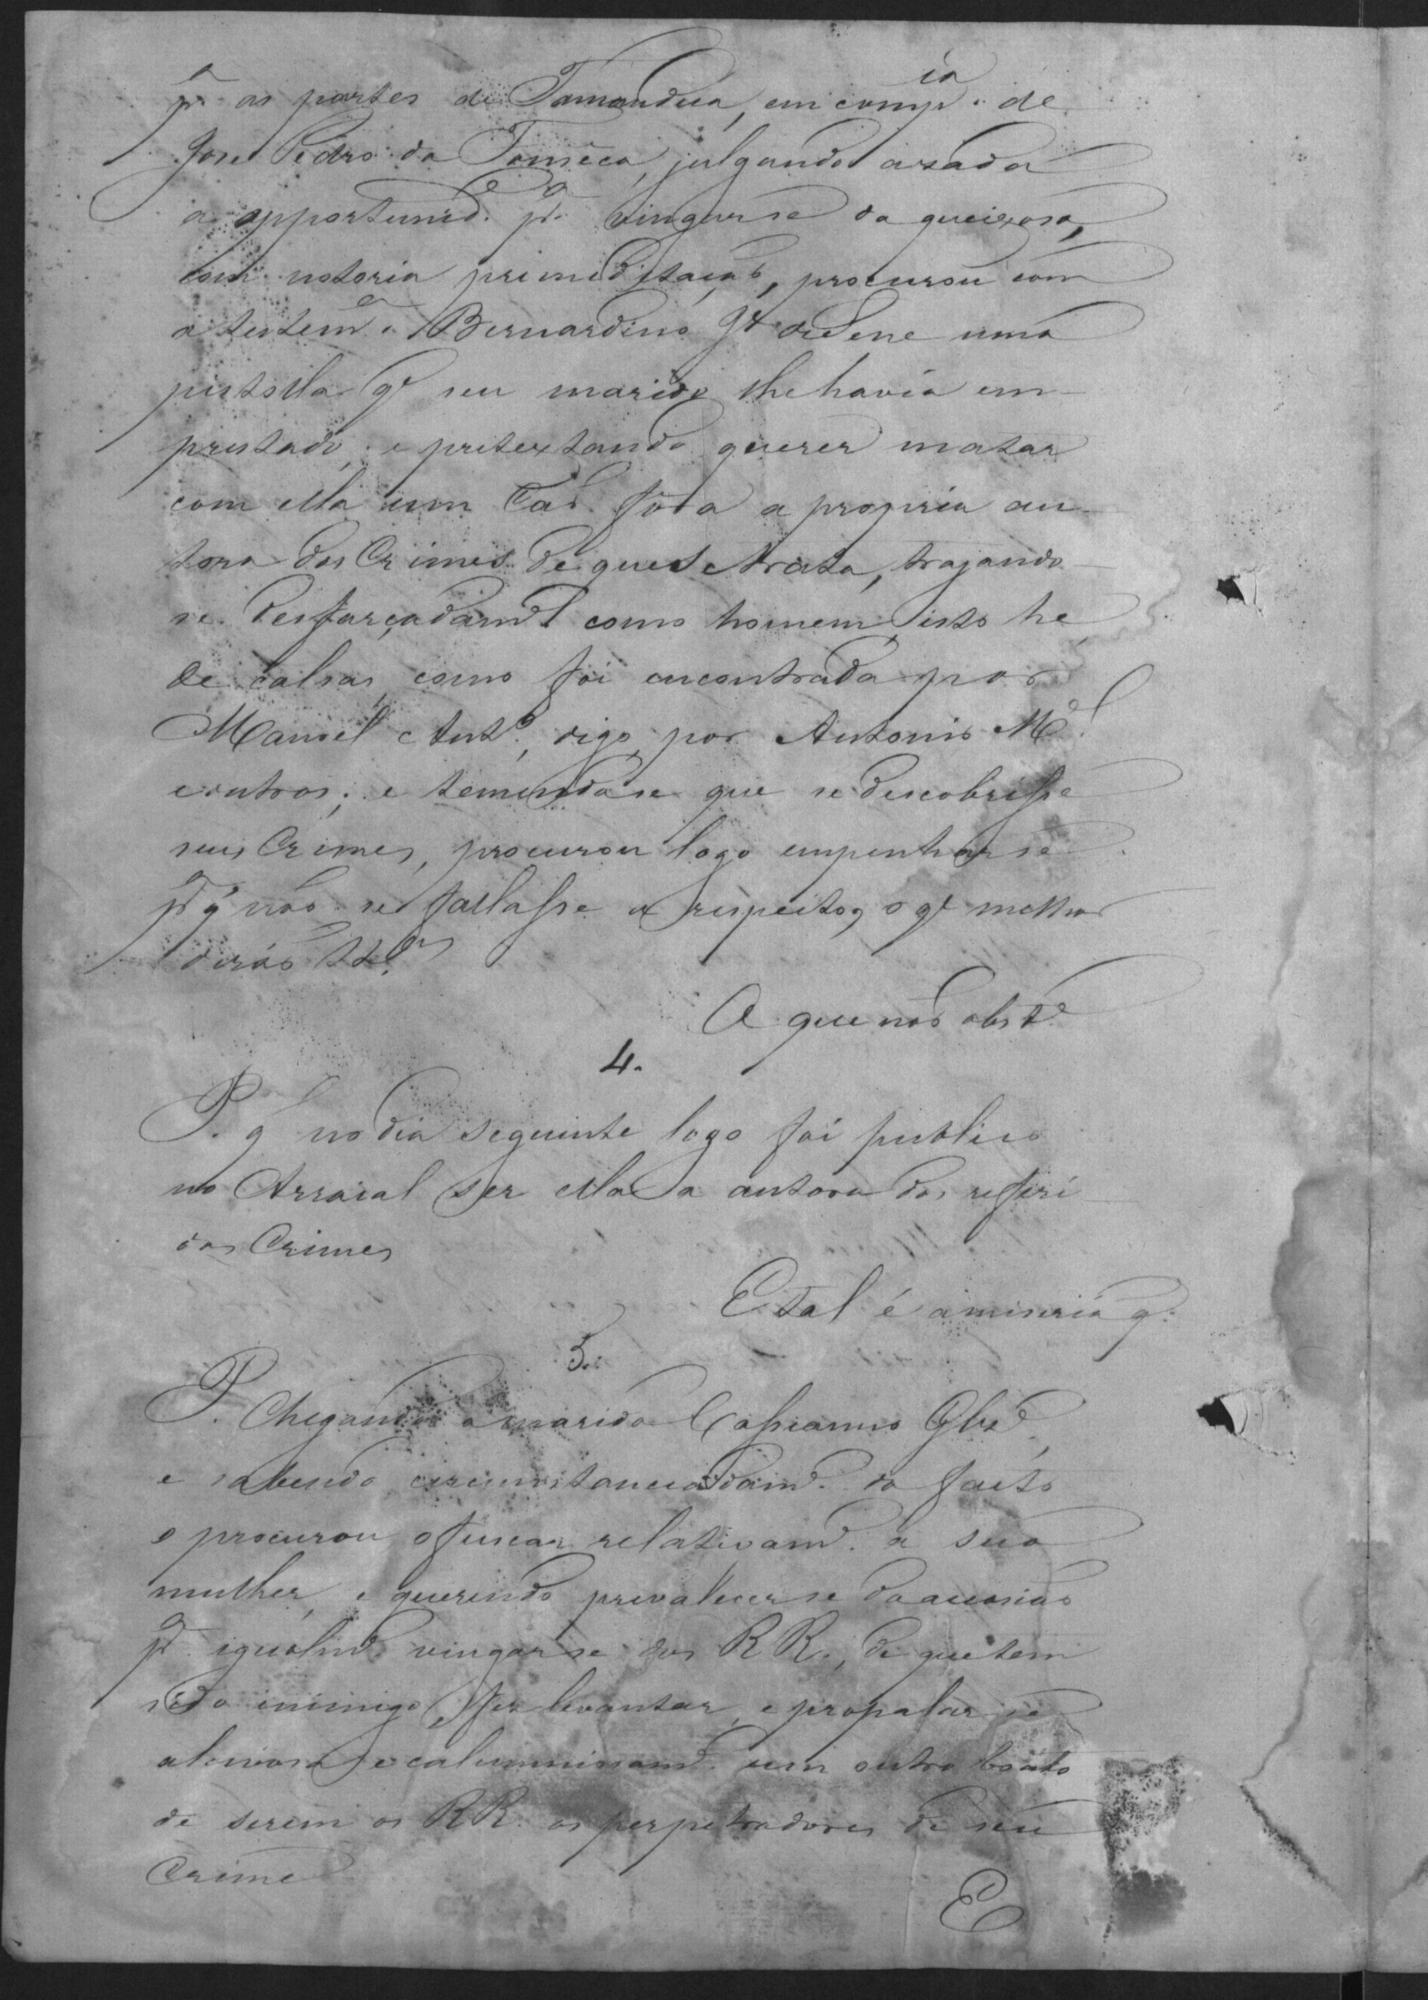 p.ª as partes de Tamanduá, em comp.ia de
Jose Pedro da Fonseca, julgando azada
a opportunid.e p.ª vingarse da queixosa,
com notoria primeditação, procurou com
a testem.ª Bernardino Je de Sene uma
pistolla q.e seu marido lhe havia em-
prestado, e pretextando querer matar
com ella um Cão fora a propria au-
tora dos Crimes de que se trata, trajando-
se desfarçadam.te como homem, isto he,
de calsas, como foi encontrada por
Manoel Ant.o, digo, por Antonio M.el
e outros; e temendose que se descobrisse
seus Crimes, procurou logo empenharse
p.ª q̃ não se fallasse a respeito, o q.e melhor
dirão tt.as
O que não obst.e
4.
P. q̃ no dia seguinte logo foi publico
no Arraial ser ella a autora dos referi-
dos Crimes
E tal é a miseria q.
5.
P. Chegando o marido Cassianno Glz.e,
e sabendo circunstanciadam.e do facto
o procurou ofuscar relativam.e a sua
mulher, e querendo prevalecerse da accasião
p.ª igualm.e vingarse dos RR., de que tem
sido inimigo, fez levantar, e propalar-se
aleivosa e calumniosam.e um outro boato
de serem os RR. os perpetradores de seu
Crime
E